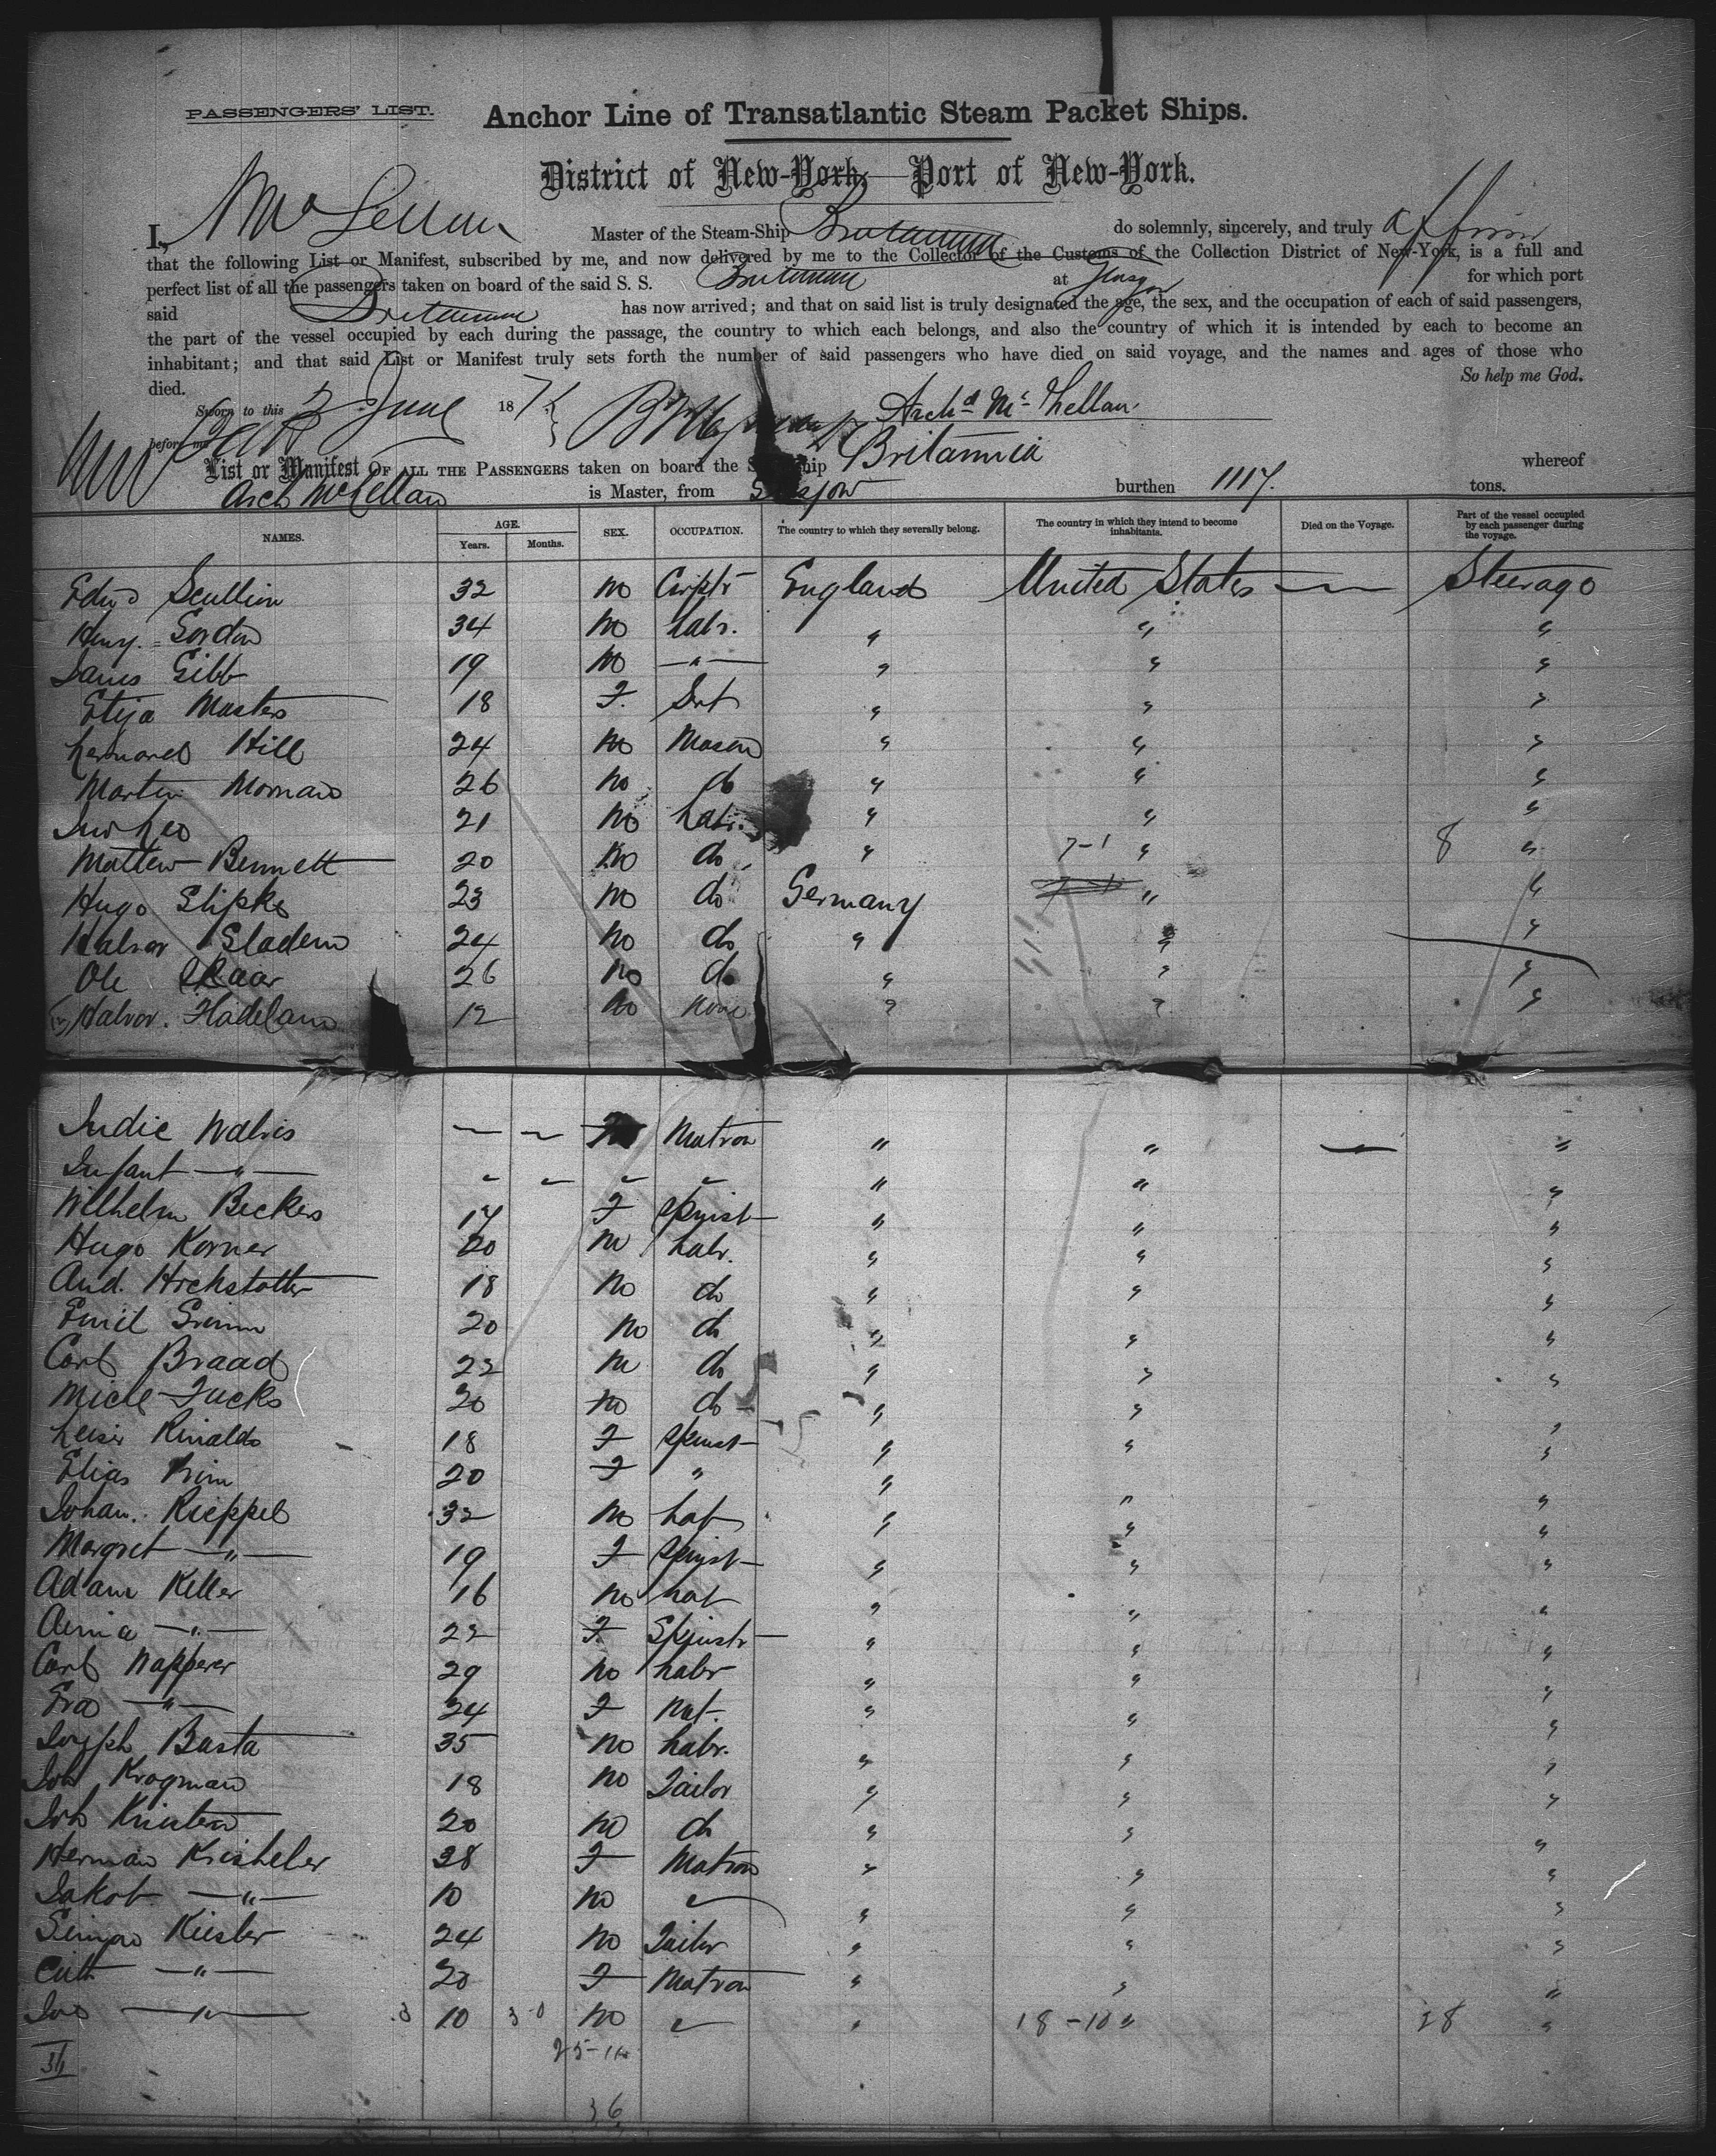 PASSENGERS' LIST.
Anchor Line of Transatlantic Steam Packet Ships.
District of New-York, Port of New-York.
I, Master of the Steam-Ship Britannia do solemnly, sincerely, and truly affirm
that the following List or Manifest, subscribed by me, and now delivered by me to the Collector of the Customs of the Collection District of New-York, is a full and
perfect list of all the passengers taken on board of the said S. S. Britannia at Glasgow for which port
said Britannia has now arrived; and that on said list is truly designated the age, the sex, and the occupation of each of said passengers,
the part of the vessel occupied by each during the passage, the country to which each belongs, and also the country of which it is intended by each to become an
inhabitant; and that said List or Manifest truly sets forth the number of said passengers who have died on said voyage, and the names and ages of those who
died. So help me God.
Sworn to this 2 June 187 Archd McLellan
before me
List or Manifest OF ALL THE PASSENGERS taken on board the ship Britannia whereof
Arch McLellan is Master, from Glasgow burthen 1117. tons.
NAMES. AGE. Years. Months. SEX. OCCUPATION. The country to which they severally belong. The country in which they intend to become inhabitants. Died on the Voyage. Part of the vessel occupied by each passenger during the voyage.
Edwd Scullion 32 M Carptr England United States — Steerage
Heny. Gordon 34 M Labr. " " "
James Gibb 19 M —"— " " "
Masters 18 F. Sert " " "
Hill 24 M Mason " " "
Martin 26 M do " " "
21 M Labr. " " "
Mattew Bennett 20 M do " 7-1 " 8 "
Hugo Slipke 23 M do Germany " "
Halvor Sladem 24 M do " " "
Ole Skaar 26 M do " " "
Halvor. Hadeland 12 M None " " "
Judic Walris — — Matron " " — "
Infant —"— " " "
Wilhelm Beckers 17 F Spinst " " "
Hugo Korner 20 M Labr. " " "
And. Hockstotter 18 M do " " "
Emil Grimm 20 M do " " "
Carl Braad 22 M do " " "
Micle Fucks 20 M do " " "
Rinaldo 18 F Spinst " " "
Elias 20 F " " " "
Johan. Rieppel 32 M Lab " " "
Margret —"— 19 F Spinst " " "
Adam Keller 16 M Lab " " "
—"— 22 F. Spinstr " " "
Carl Wapperer 29 M Labr " " "
Eva —"— 24 F Mat. " " "
Joseph Basta 35 M Labr. " " "
Joh Krogman 18 M Tailor " " "
Joh 20 M do " " "
Herman Krisheler 38 F Matron " " "
Jakob —"— 10 M " " "
Kiesler 24 M Tailor " " "
—"— 20 F Matron " " "
—"— 10 M " 18-10 " 28 "
36